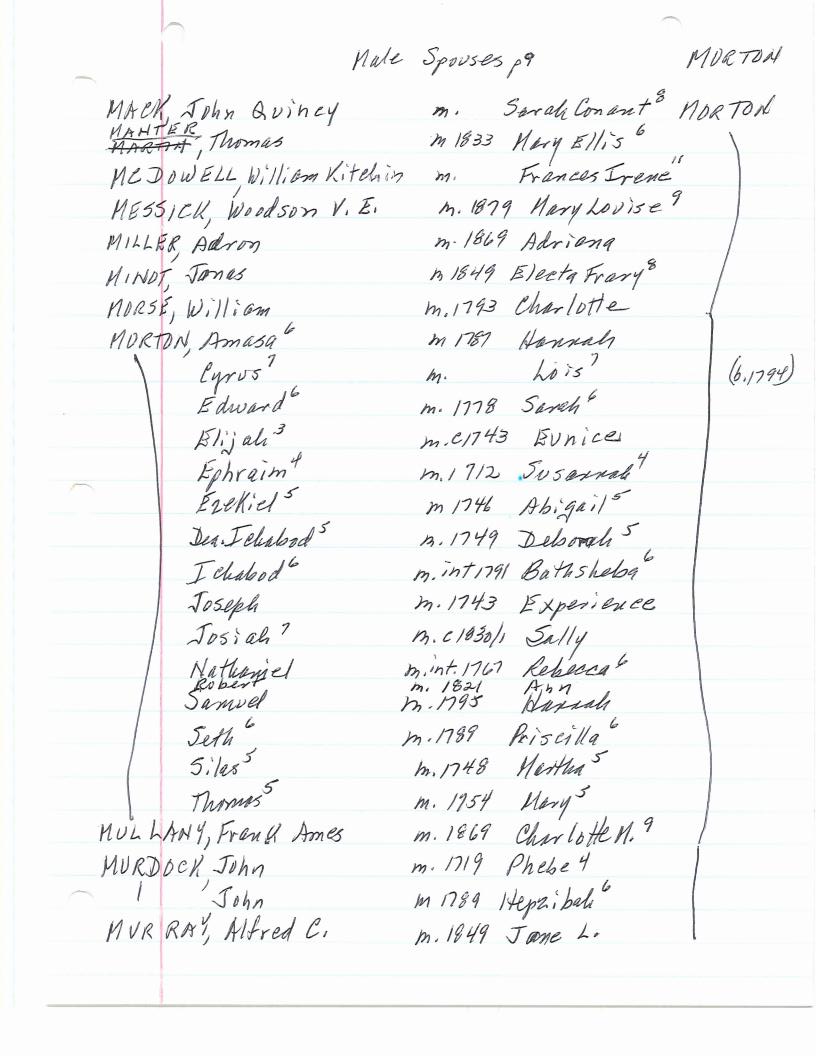 Male Spouses p9 MORTON
MACK, John Quincy m. Sarah Conant⁸ MORTON
MANTER
MARTIN, Thomas m 1833 Mary Ellis⁶
MCDOWELL, William Kitchin m. Frances Irene¹¹
MESSICK, Woodson V. E. m. 1879 Mary Louise⁹
MILLER, Adron m. 1869 Adriana
MINOT, Jonas m 1849 Electa Frary⁸
MORSE, William m. 1793 Charlotte
MORTON, Amasa⁶ m 1787 Hannah
Cyrus⁷ m. Lois⁷ (b. 1794)
Edward⁶ m. 1778 Sarah⁶
Elijah³ m. c1743 Eunice
Ephraim⁴ m. 1712 Susannah⁴
Ezekiel⁵ m 1746 Abigail⁵
Dea. Ichabod⁵ m. 1749 Deborah⁵
Ichabod⁶ m. int 1791 Bathsheba⁶
Joseph m. 1743 Experience
Josiah⁷ m. c 1830/1 Sally
Nathaniel m. int. 1767 Rebecca⁶
Robert m. 1821 Ann
Samuel m. 1795 Hannah
Seth⁶ m. 1789 Priscilla⁶
Silas⁵ m. 1748 Martha⁵
Thomas⁵ m. 1754 Mary⁵
MULLANY, Frank Ames m. 1869 Charlotte M.⁹
MURDOCK, John m. 1719 Phebe⁴
John m 1789 Hepzibah⁶
MURRAY, Alfred C. m. 1849 Jane L.